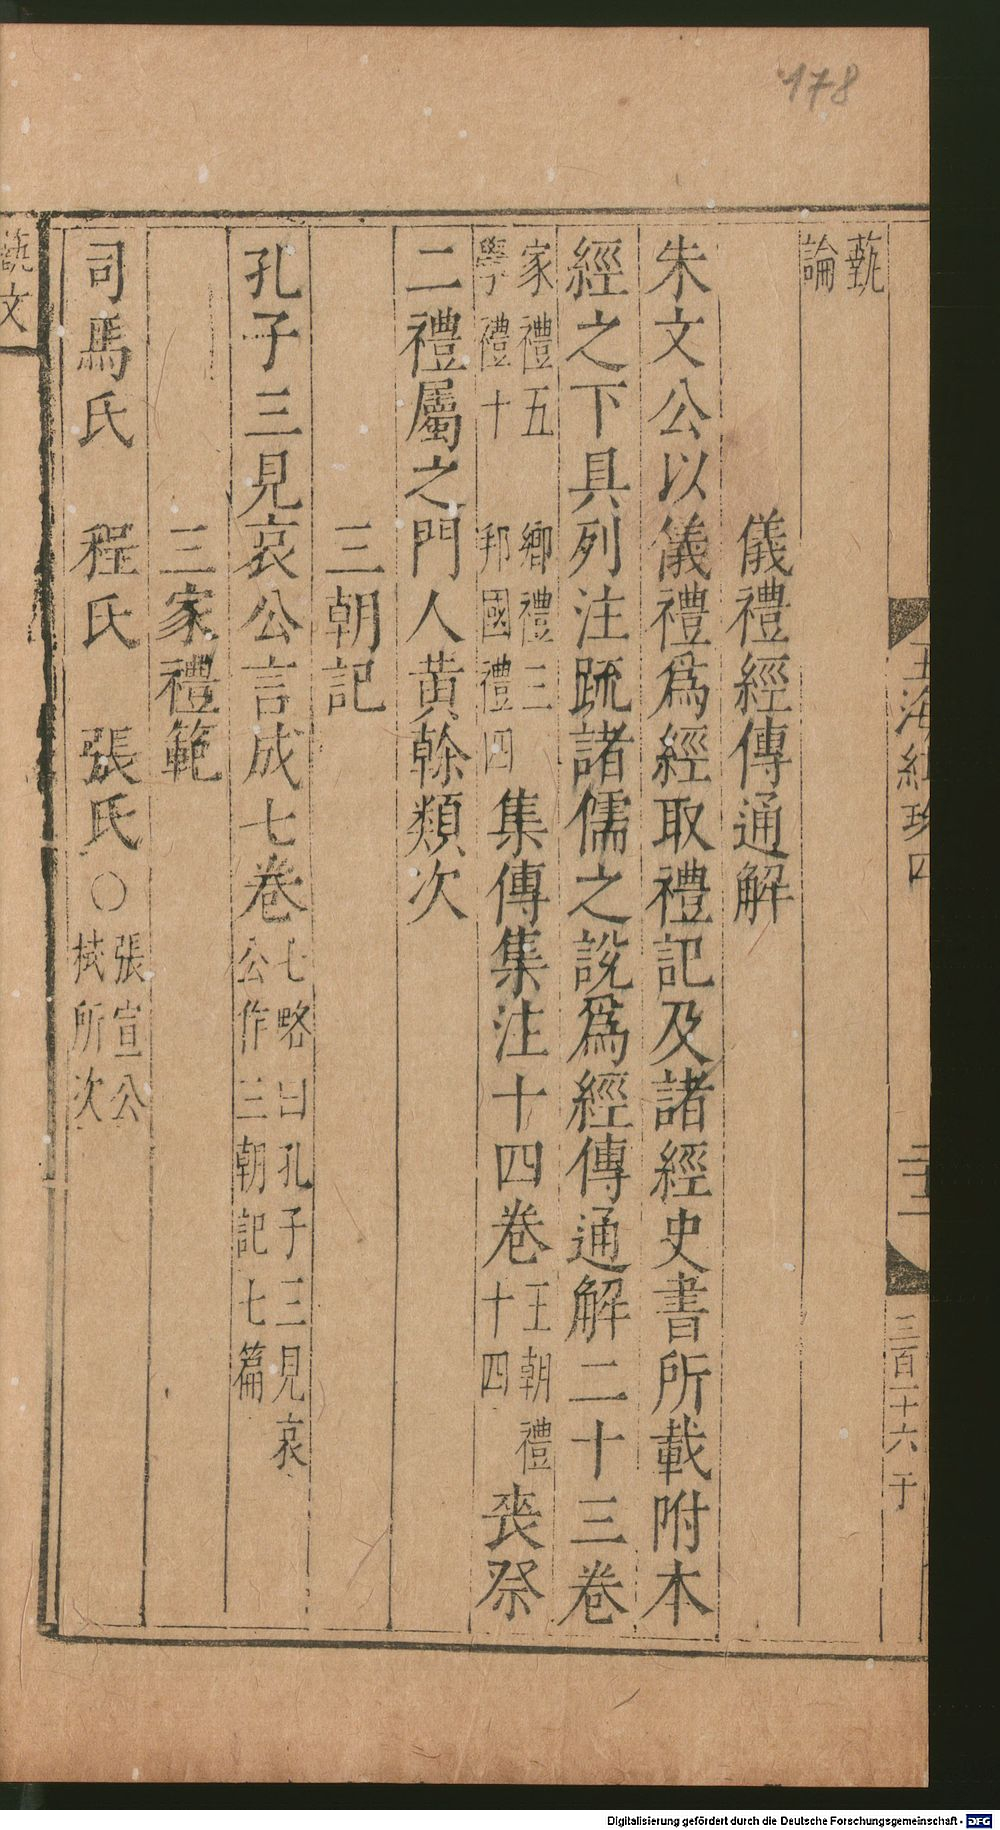 178
玉海紺珠四
三百二十六 于
藝
論
儀禮經傳通解
朱文公以儀禮爲經取禮記及諸經史書所載附本
經之下具列注䟽諸儒之說爲經傳通解二十三卷
家禮五 鄉禮三
學禮十 邦國禮四
集傳集注十四卷
王朝禮
十四
喪祭
二禮屬之門人黄榦類次
三朝記
孔子三見哀公言成七卷
七略曰孔子三見哀
公作三朝記七篇
三家禮範
司馬氏 程氏 張氏○
張宣公
栻所次
藝文
Digitalisierung gefördert durch die Deutsche Forschungsgemeinschaft - DFG